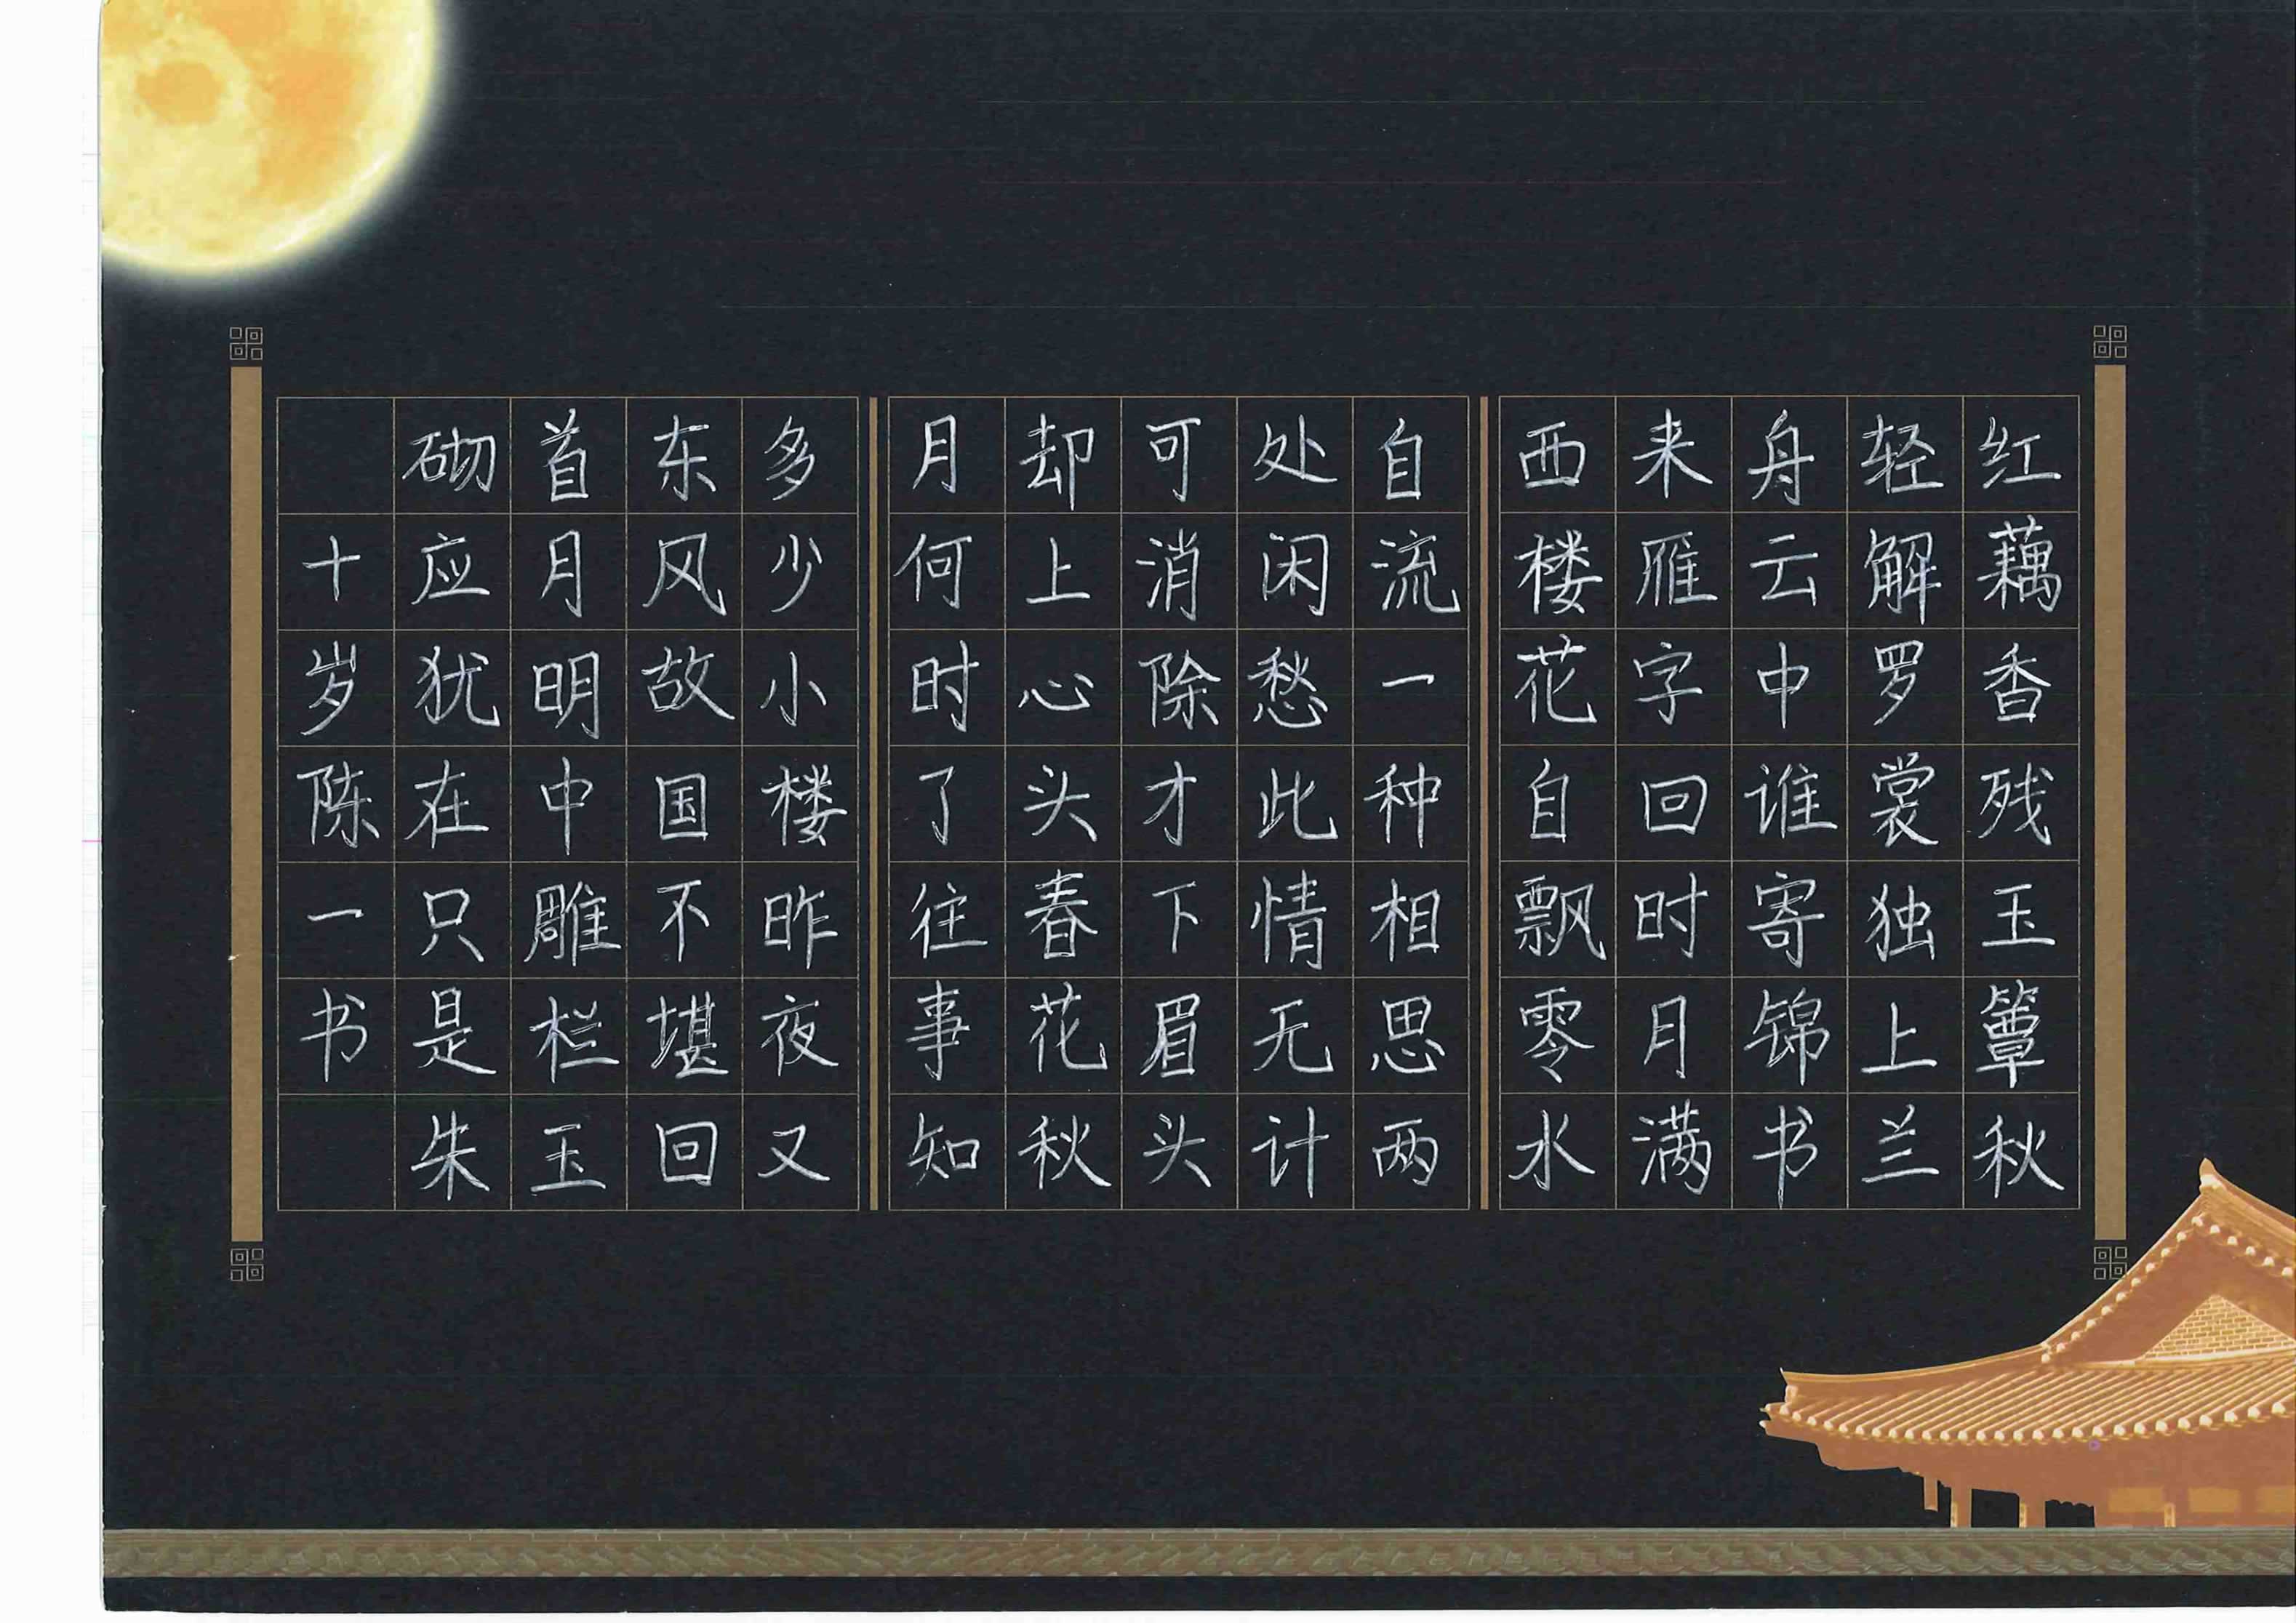 红藕香残玉簟秋
轻解罗裳独上兰
舟云中谁寄锦书
来雁字回时月满
西楼花自飘零水
自流一种相思两
处闲愁此情无计
可消除才下眉头
却上心头春花秋
月何时了往事知
多少小楼昨夜又
东风故国不堪回
首月明中雕栏玉
砌应犹在只是朱
十岁陈一书